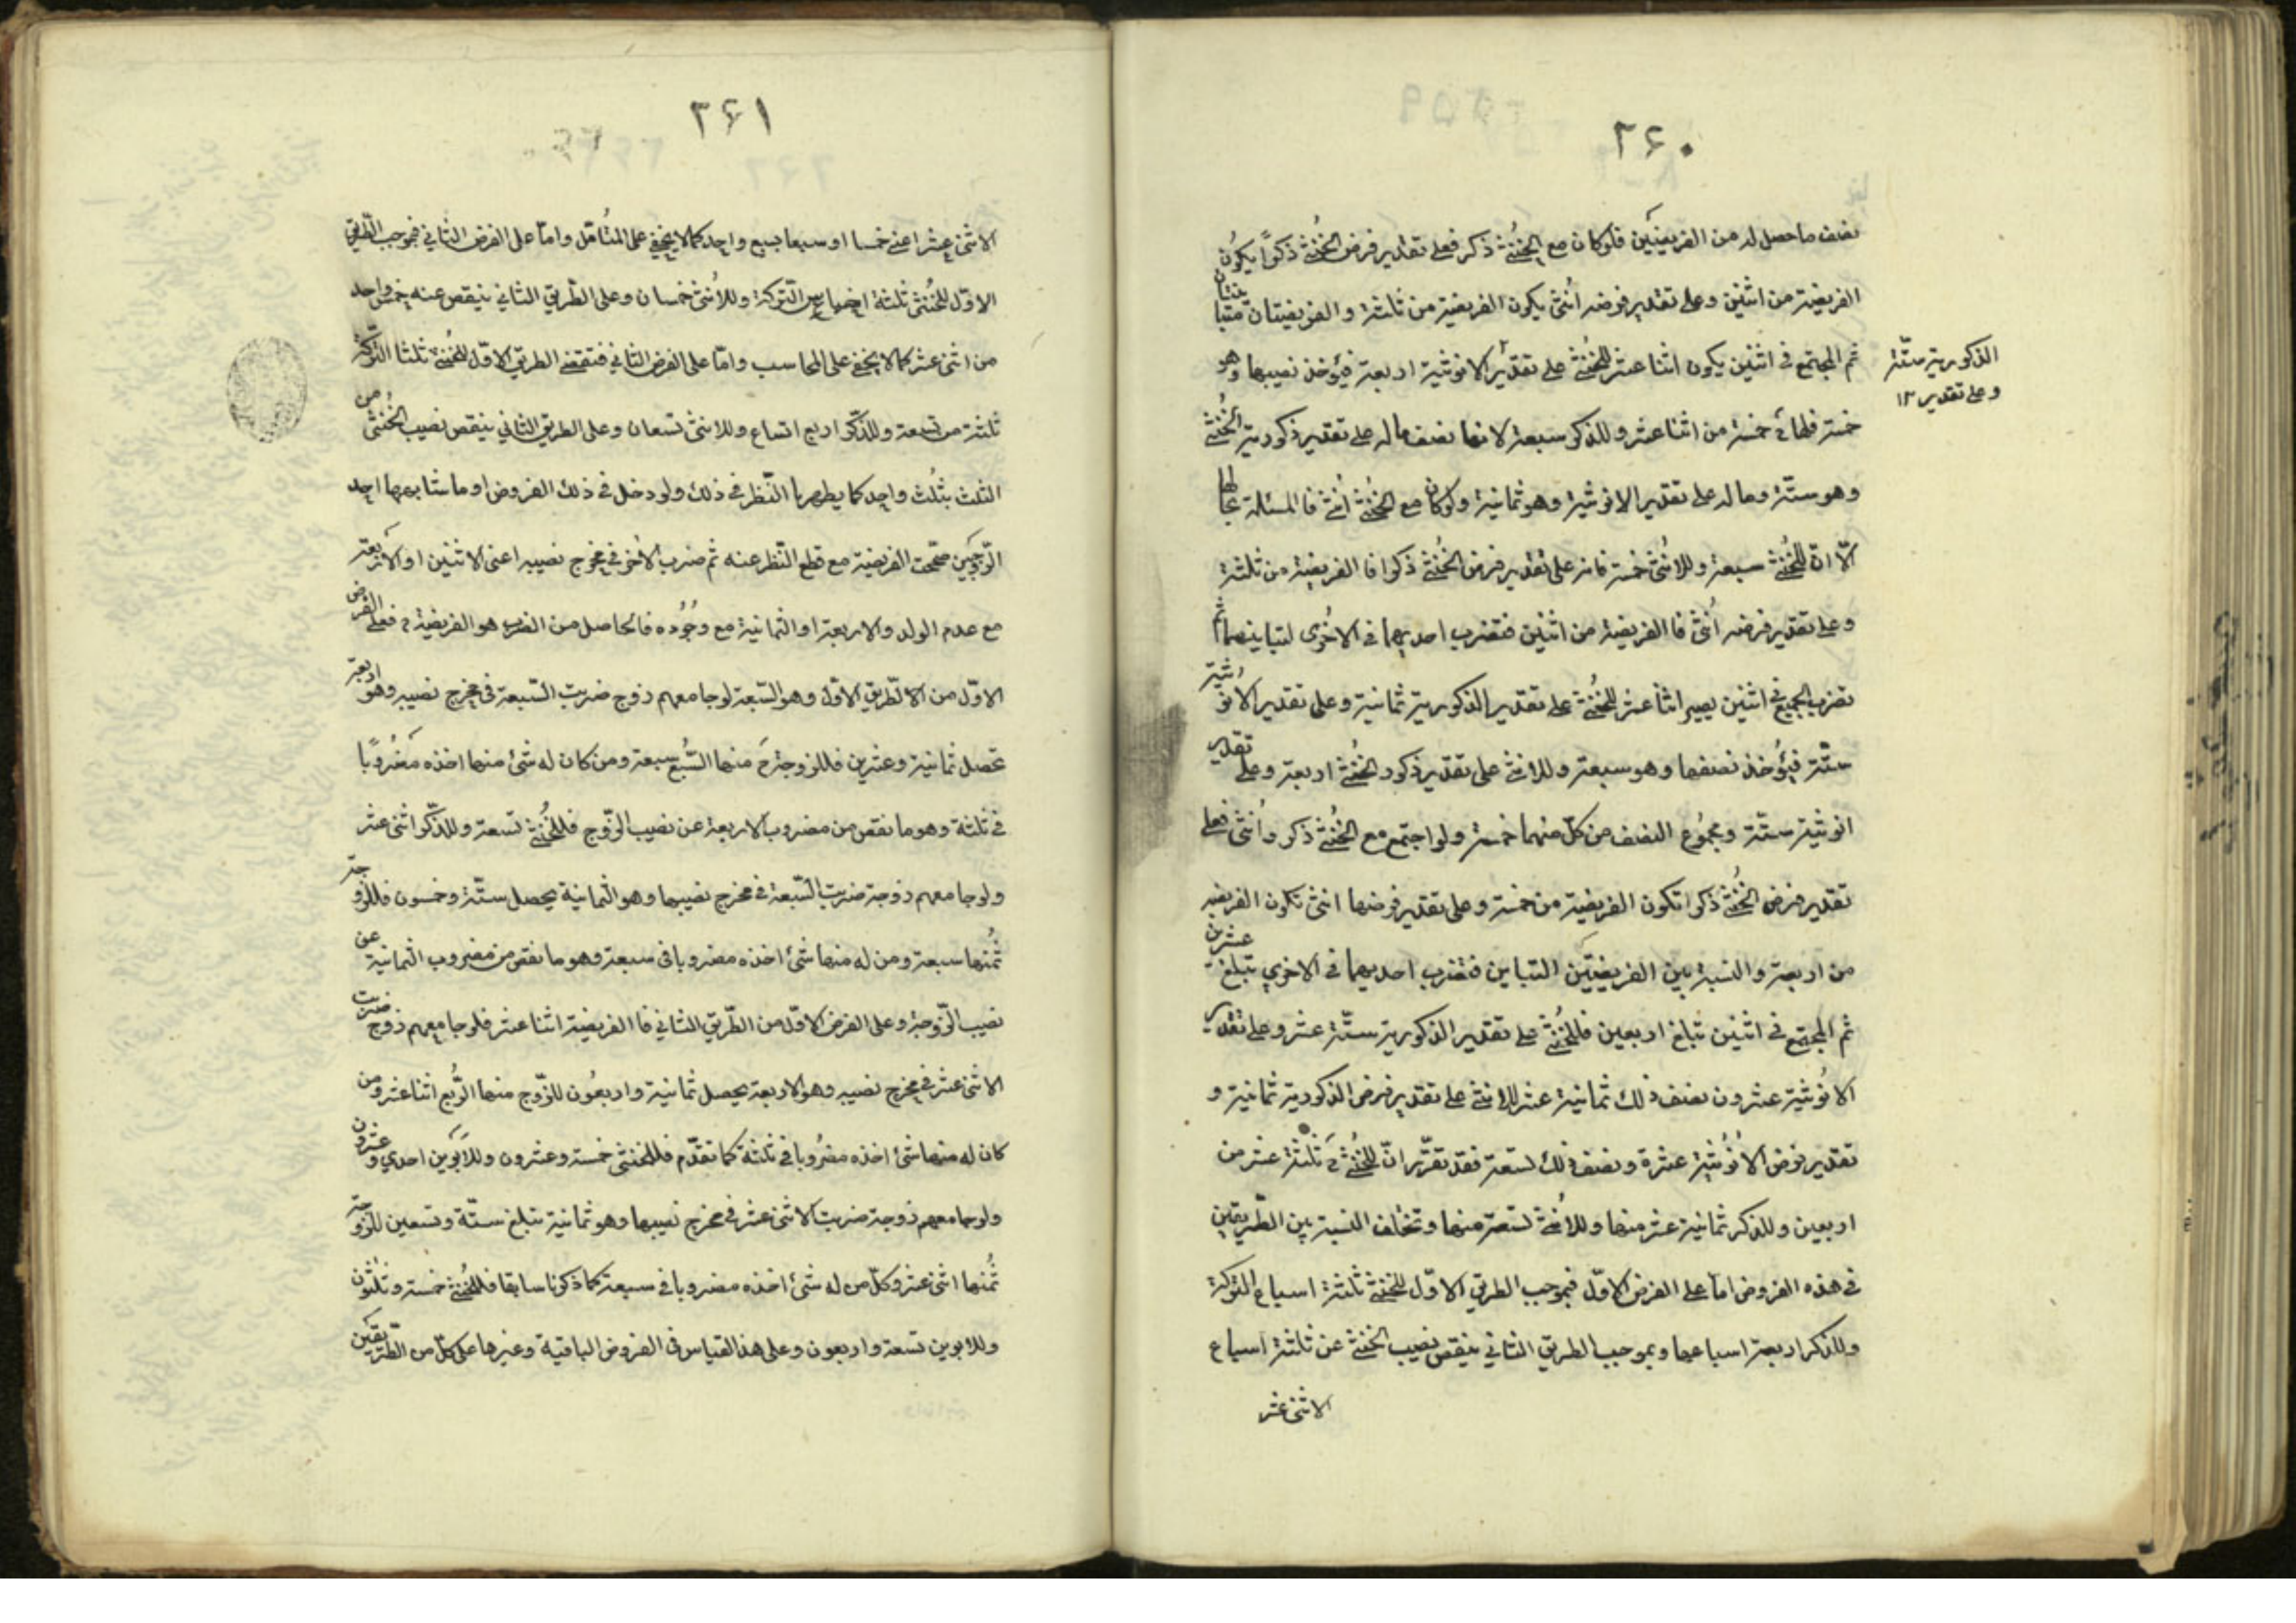 ۲۶۰
نصف ما حصل له من الفريضتين فلو كان مع الخُنثى ذكر فعلى تقدير فرض الخُنثى ذكراً يكون
الفريضة من اثنين وعلى تقدير فرضه اُنثى يكون الفريضة من ثلثة والفريضتان متباينتان
ثم المجتمع في اثنين يكون اثنا عشر للخُنثى على تقدير الانوثية اربعة فيُؤخذ نصيبها وهو
الذكورية ستّة
وعلى تقدير ١٢
خمسة فلها ح خمسة من اثنا عشر وللذكر سبعة لانها نصف ماله على تقدير ذكورية الخُنثى
وهو ستّة وماله على تقدير الانوثية وهو ثمانية ولو كان مع الخُنثى اُنثى فالمسئلة بحالها
الّا انّ للخُنثى سبعة وللاُنثى خمسة فانه على تقدير فرض الخُنثى ذكرا فالفريضة من ثلثة
وعلى تقدير فرضه اُنثى فالفريضة من اثنين فتضرب احديهما في الاخُرى لتباينهما ثم
تضرب الجميع في اثنين يصير اثنا عشر للخُنثى على تقدير الذكورية ثمانية وعلى تقدير الانوثيّة
ستّة فيُؤخذ نصفها وهو سبعة وللانثى على تقدير ذكور الخُنثى اربعة وعلى تقدير
انوثية ستّة ومجموُع النصف من كلّ منهما خمسة ولو اجتمع مع الخُنثى ذكر واُنثى فعلى
تقدير فرض الخُنثى ذكرا تكون الفريضة من خمسة وعلى تقدير فرضها انثى تكون الفريضة
من اربعة والنسبة بين الفريضتَين التباين فتضرب احديهما في الاخري تبلغ عشرين
ثم المجتمع في اثنين تبلغ اربعين فللخُنثى على تقدير الذكورية ستّة عشر وعلى تقدير
الانُوثية عشرون نصف ذلك ثمانية عشر للانثى على تقدير فرض الذكورية ثمانية و
تقدير فرض الاُنوُثية عشرة ونصف ذلك تسعة فقد تقرّر انّ للخُنثى ح ثلثة عشر من
اربعين وللذكر ثمانية عشر منها وللاُنثى تسعة منها وتختلف النسبة بين الطّريقين
في هذه الفروض امّا على الفرض الاوّل فبموجب الطريق الاوّل للخنثى ثلثة اسباع التركة
وللذكر اربعة اسباعها وبموجب الطريق الثاني ينقص نصيب الخنثى عن ثلثة اسباع
الاثنى عشر
۳۶۱
الاثنى عشر اعنى خمسا او سبعا بسبع واحد كما لا يخفى على المتُأمّل وامّا على الفرض الثاني فبموجب الطّريق
الاوّل للخُنثى ثلثة اخماس التركة وللاُنثى خمسان وعلى الطّريق الثاني ينقص عنه خمس واحد
من اثنى عشر كما لا يخفى على المحاسب وامّا على الفرض الثالث فتقتضى الطريق الاوّل للخُنثى ثلثا التركة
ثلثة من تسعة وللذكر اربع اتساع وللانثى تسعان وعلى الطريق الثاني ينقص نصيب الخُنثى من
الثلث بثُلث واحد كما يظهر بالنّظر في ذلك ولو دخل في ذلك الفروض او ما شابهها احد
الزّوجَين صححّت الفريضة مع قطع النّظر عنه ثم ضرب الاُخرى في مخرج نصيبه اعنى الاثنين او الاربعة
مع عدم الولد والاربعة او الثمانية مع وُجُوده فالحاصل من الضرب هو الفريضة ح فعلى الفرض
الاوّل من الطّريق الاوّل وهو السّبعة لو جامعهم زوج ضربت السّبعة في مخرج نصيبه وهو اربعة
تحصل ثمانية وعشرين فللزوج ح منها السُّبع سبعة ومن كان له شئ منها اخذه مَضروُبًا
في ثلثة وهو ما نقص من مضروب الاربعة عن نصيب الزّوج فللخُنثى تسعة وللذّكر اثنى عشر
ولو جامعهم زوجة ضربت السّبعة في مخرج نصيبها وهو الثمانية يحصل ستّة وخمسون فللزّوجة
ثُمنها سبعة ومن له منها شئ اخذه مضروبا في سبعة وهو ما نقص من مضروب الثمانية عن
نصيب الزّوجة وعلى الفرض الاوّل من الطّريق الثاني فالفريضة اثنا عشر فلو جامعهم زوج ضربت
الاثنى عشر في مخرج نصيبه وهو الاربعة يحصل ثمانية واربعُون للزّوج منها الرُّبع اثنا عشر ومن
كان له منها شئ اخذه مضُروبا في ثلثة كما تقدّم فللخنثى خمسة وعشرون وللاَبَوين احدي وعشرون
ولو جامعهم زوجة ضربت الاثنى عشر في مخرج نصيبها وهو ثمانية تبلغ ستّة وتسعين للزّوجة
ثُمنها اثنى عشر وكلّ من له شئ اخذه مضروبا في سبعة كما ذكرنا سابقا فللخُنثى خمسة وثلثون
وللابوين تسعة واربعون وعلى هذا القياس في الفروض الباقية وغيرها على كلّ من الطّريقين